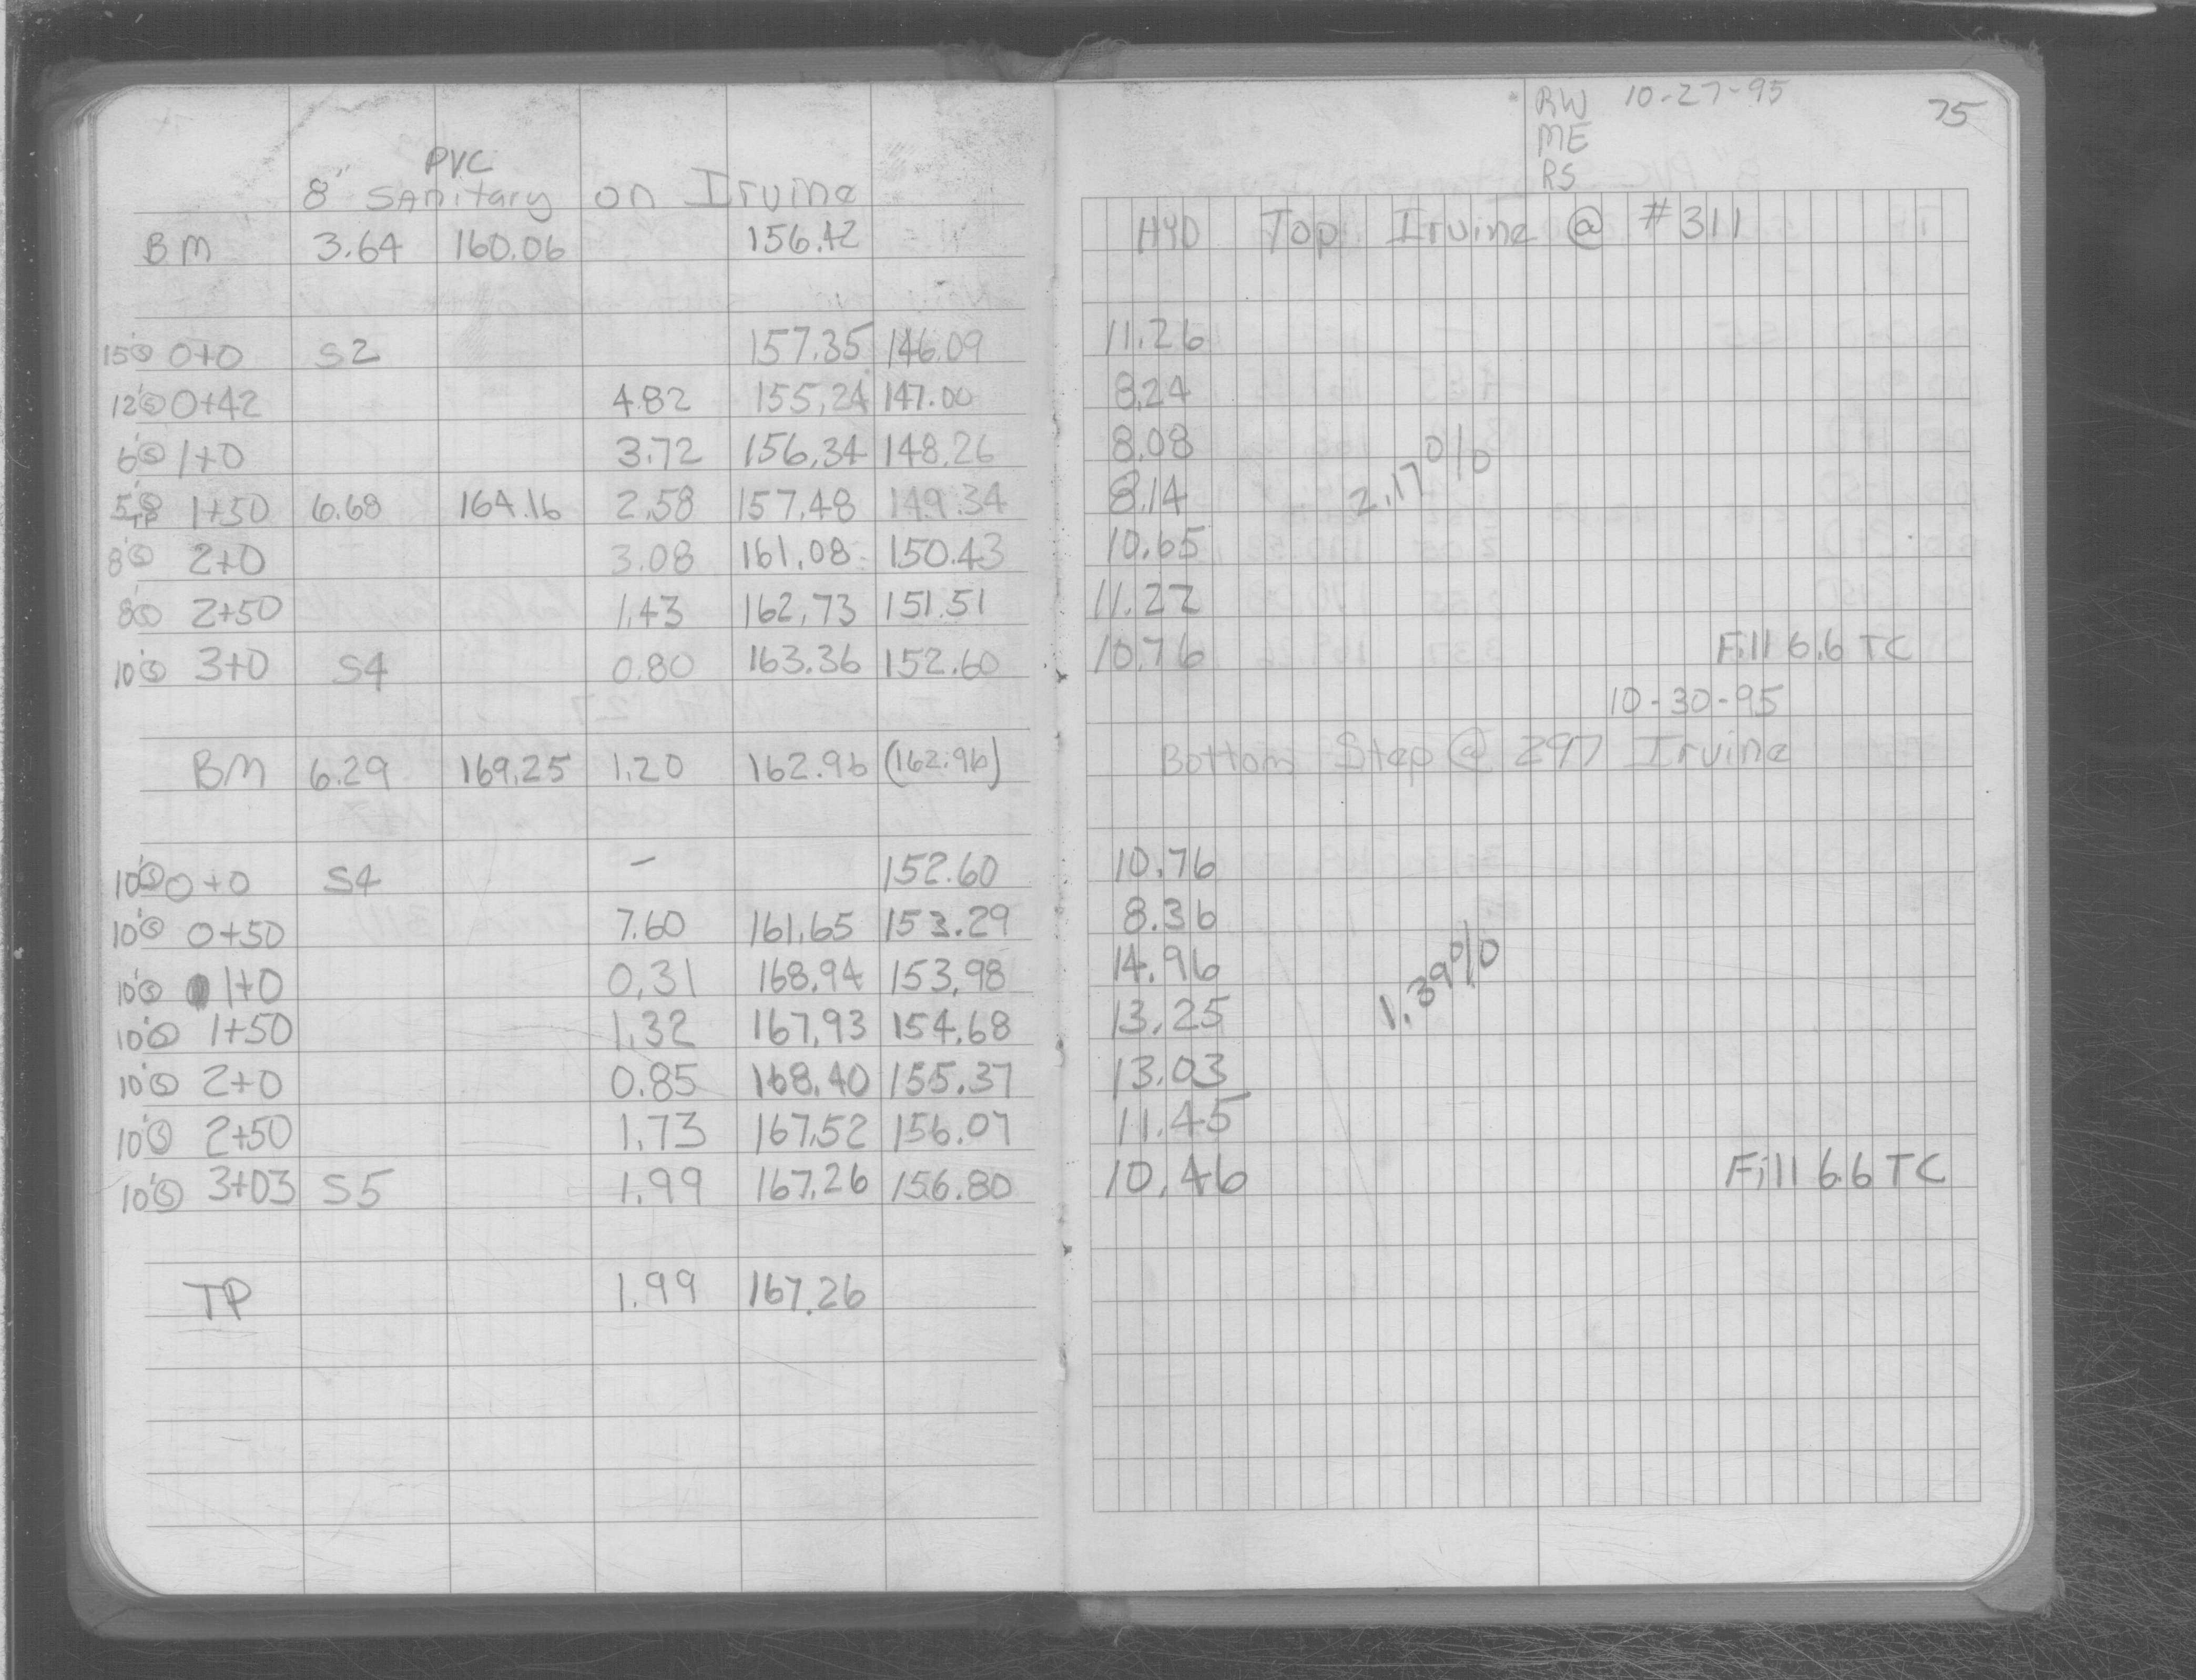 PVC
8" Sanitary on Irvine
BM 3.64 160.06 156.42
15' Ⓢ 0+0 S2 157.35 146.09
12' Ⓢ 0+42 4.82 155.24 147.00
6' Ⓢ 1+0 3.72 156.34 148.26
5' Ⓢ TP 1+50 6.68 164.16 2.58 157.48 149.34
8' Ⓢ 2+0 3.08 161.08 150.43
8' Ⓢ 2+50 1.43 162.73 151.51
10' Ⓢ 3+0 S4 0.80 163.36 152.60
BM 6.29 169.25 1.20 162.96 (162.96)
10' Ⓢ 0+0 S4 - 152.60
10' Ⓢ 0+50 7.60 161.65 153.29
10' Ⓢ 1+0 0.31 168.94 153.98
10' Ⓢ 1+50 1.32 167.93 154.68
10' Ⓢ 2+0 0.85 168.40 155.37
10' Ⓢ 2+50 1.73 167.52 156.07
10' Ⓢ 3+03 S5 1.99 167.26 156.80
TP 1.99 167.26
RW 10-27-95 75
ME
RS
HYD Top Irvine @ #311
11.26
8.24
8.08
8.14 2.17%
10.65
11.22
10.76 Fill 6.6 TC
10-30-95
Bottom Step @ 297 Irvine
10.76
8.36
14.96
13.25 1.39%
13.03
11.45
10.46 Fill 6.6 TC